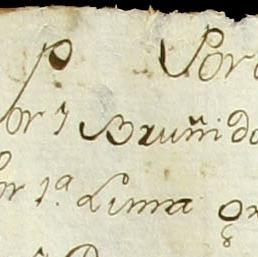 P Por
or 7 Bruñido
or 1.ª Lima